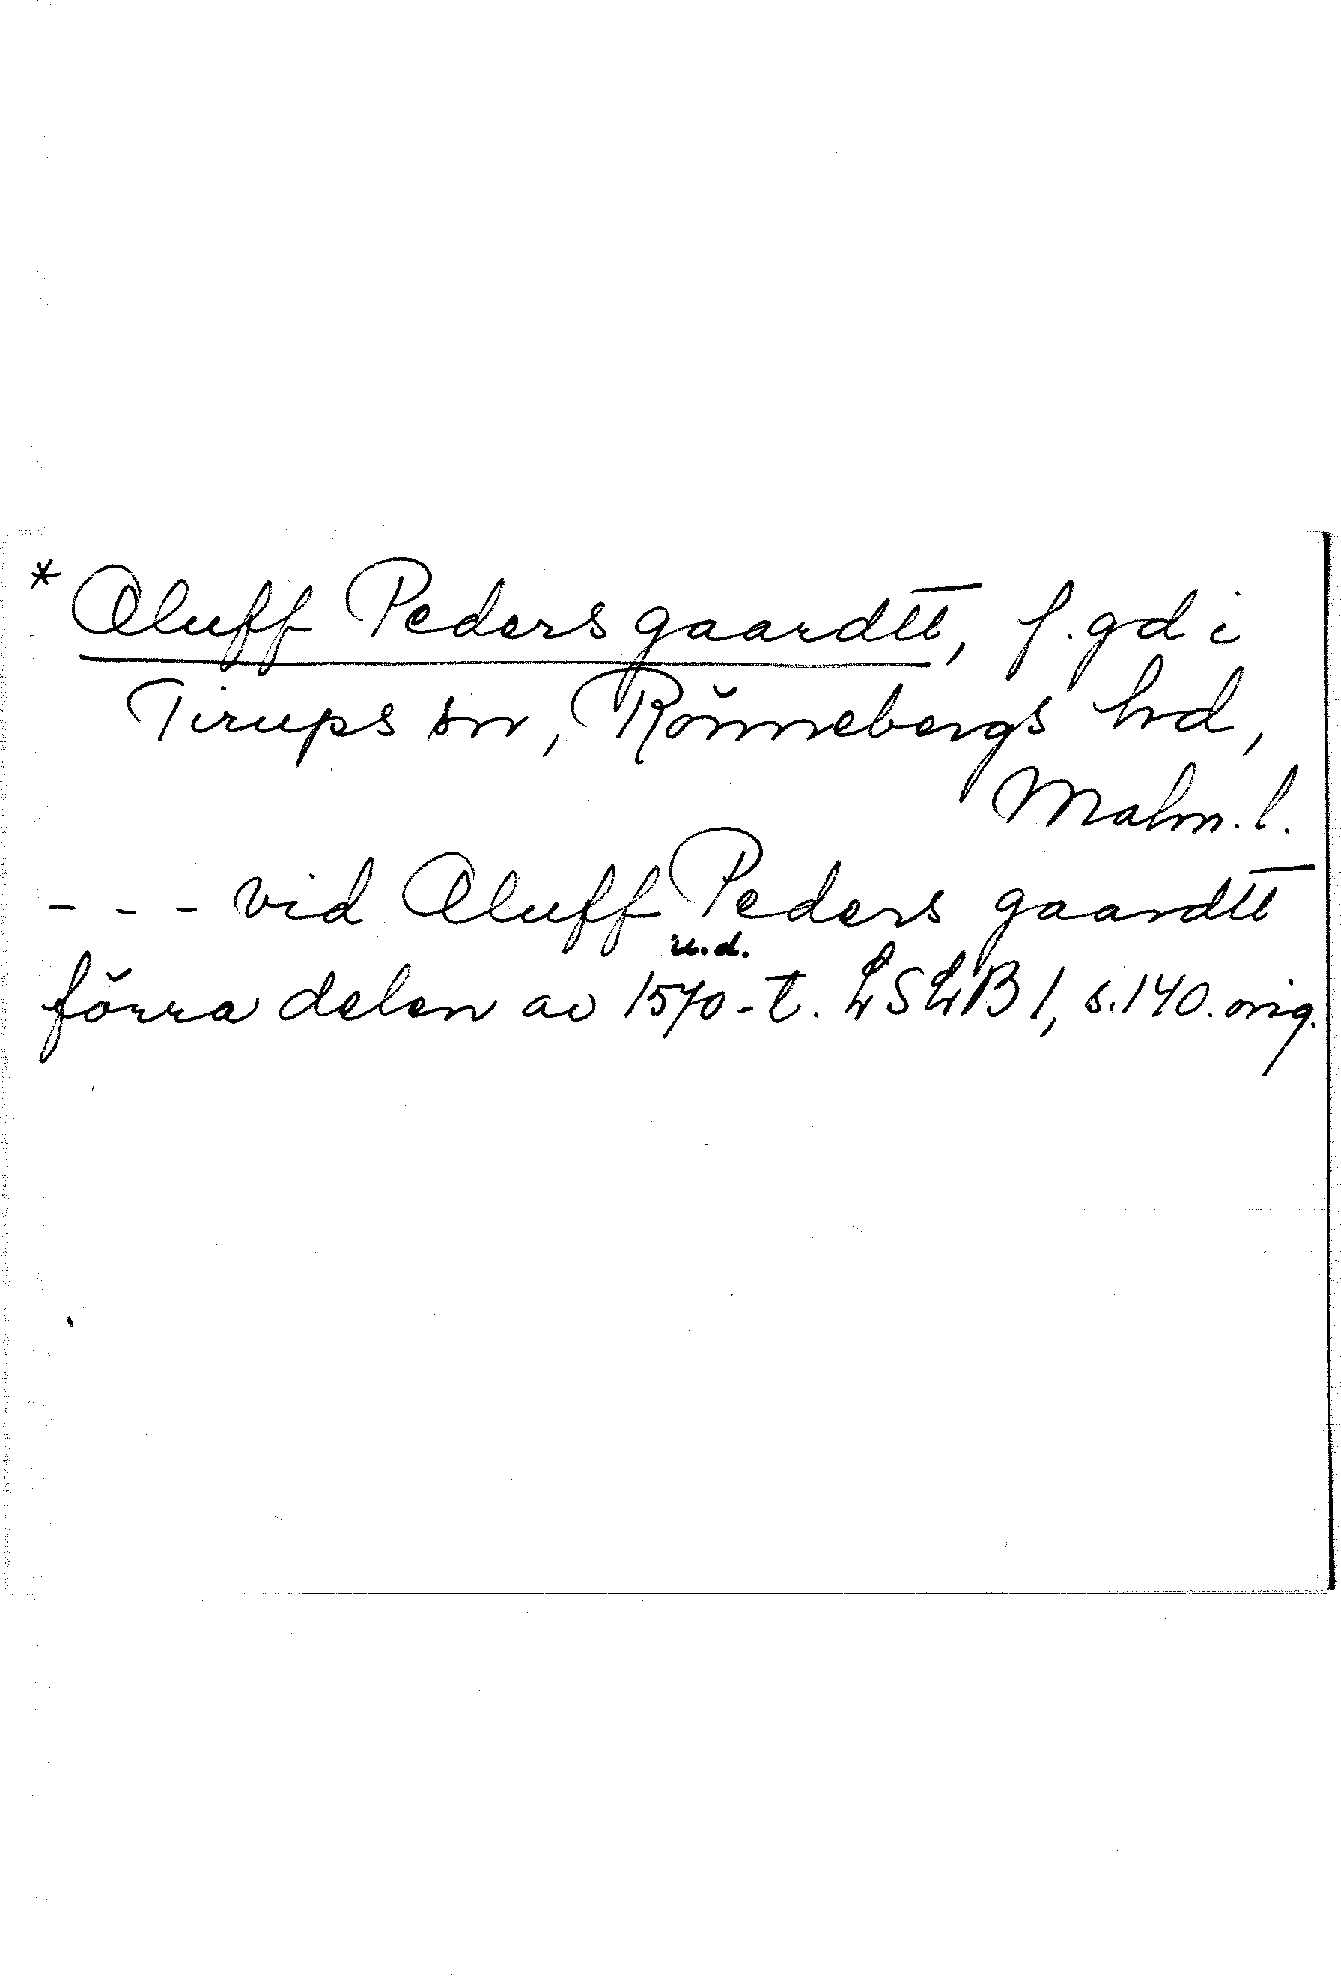 * Oluff Peders gaardtt, f. gd i
Tirups sn, Rönnebergs hd,
Malm. l.
- - - vid Oluff Peders gaardtt
u.d.
förra delen av 1570-t. LSLB 1, s. 140. orig.